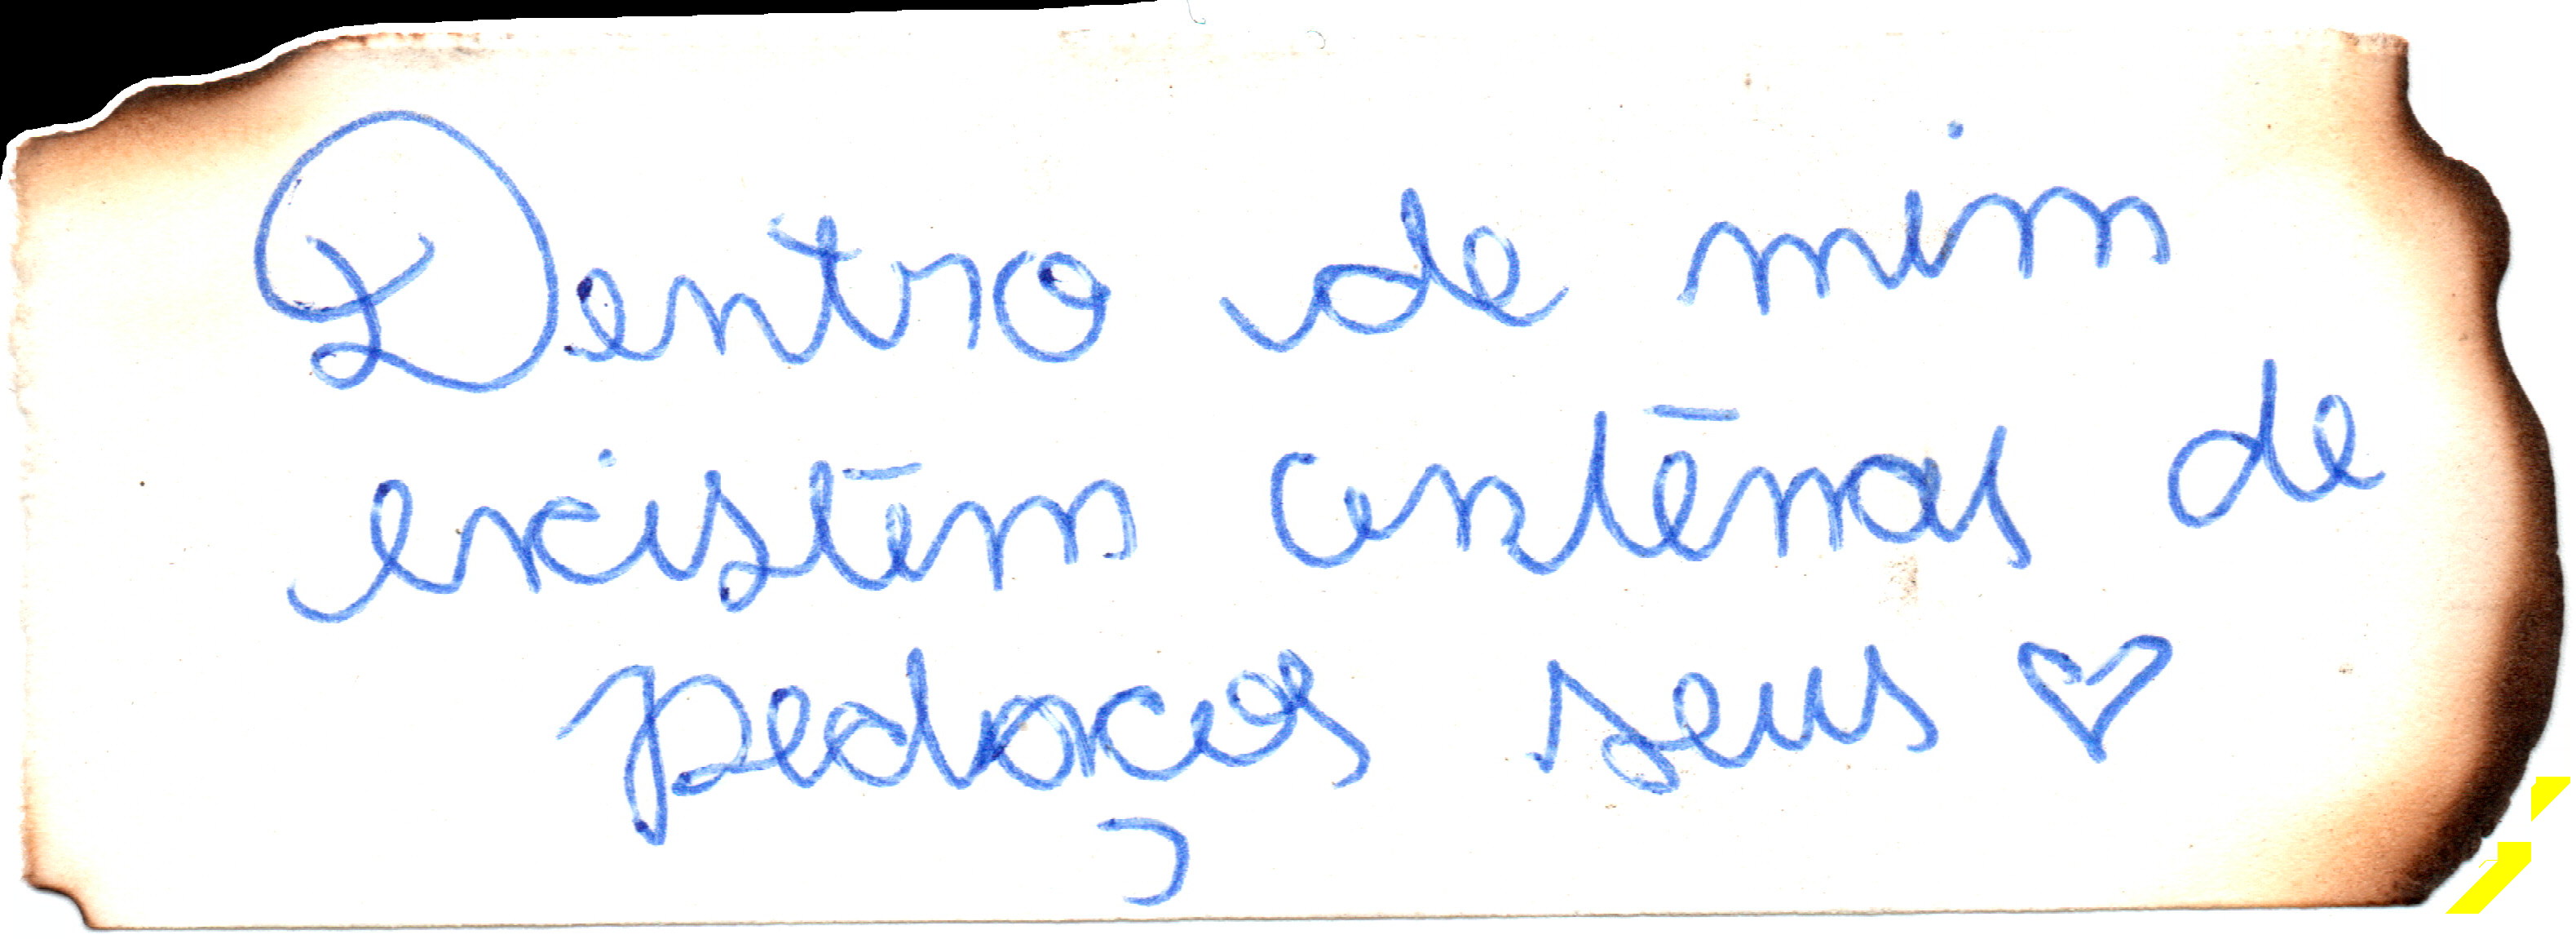 Dentro de mim
existem centenas de
pedaços seus ♡